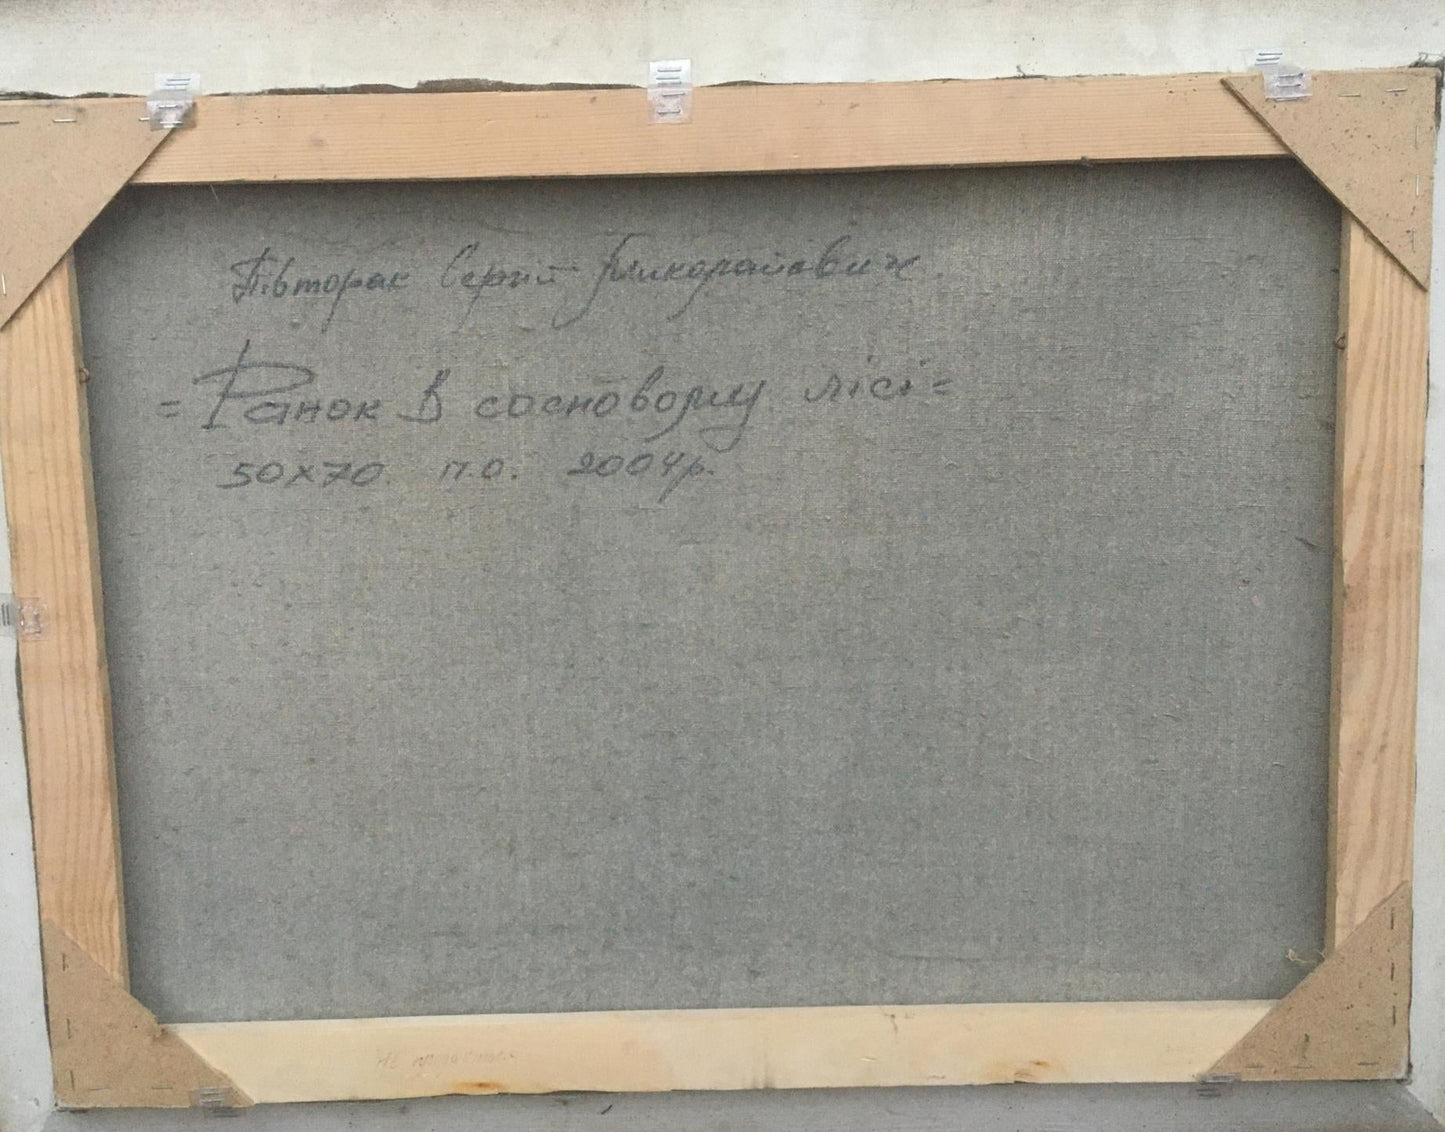 Півторак Сергій Миколайович
= Ранок в сосновому лісі =
50х70. п.о. 2004р.